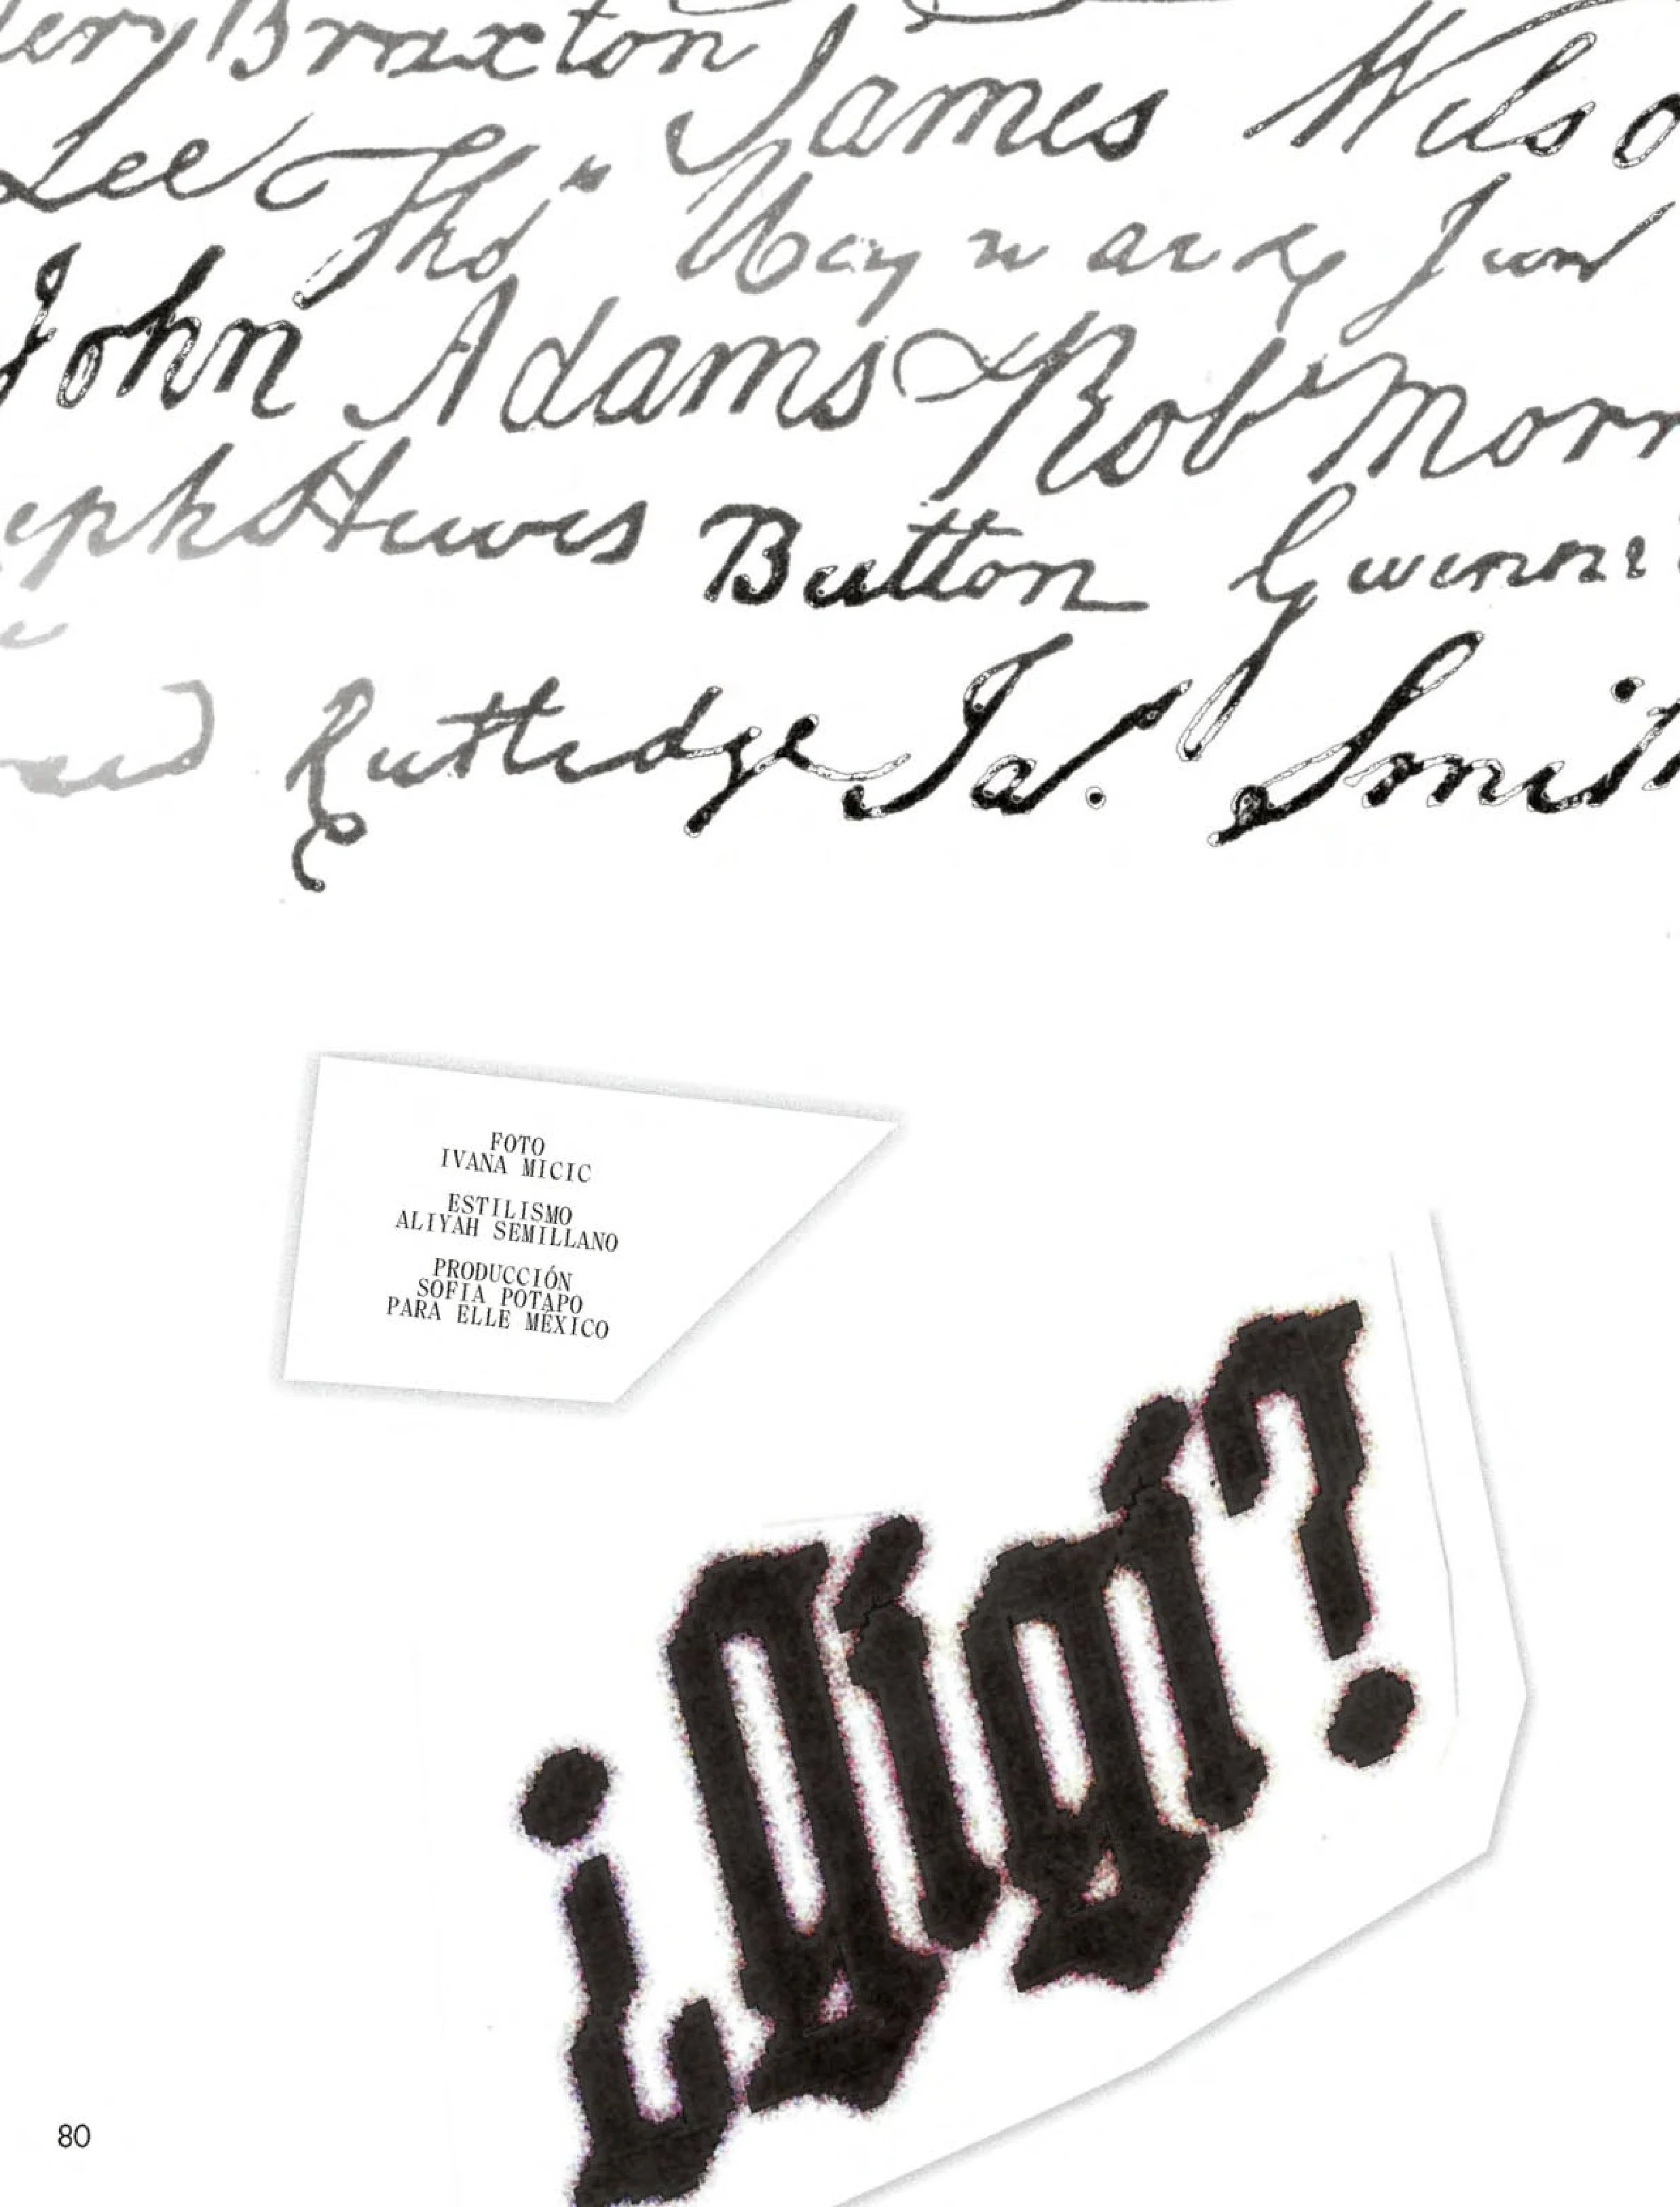 Braxton James
Lee Tho
John Adams Rob Morr
Hewes Button Gwinn
Rutledge Ja. Smit
FOTO
IVANA MICIC
ESTILISMO
ALIYAH SEMILLANO
PRODUCCIÓN
SOFIA POTAPO
PARA ELLE MÉXICO
¿gigi?
80